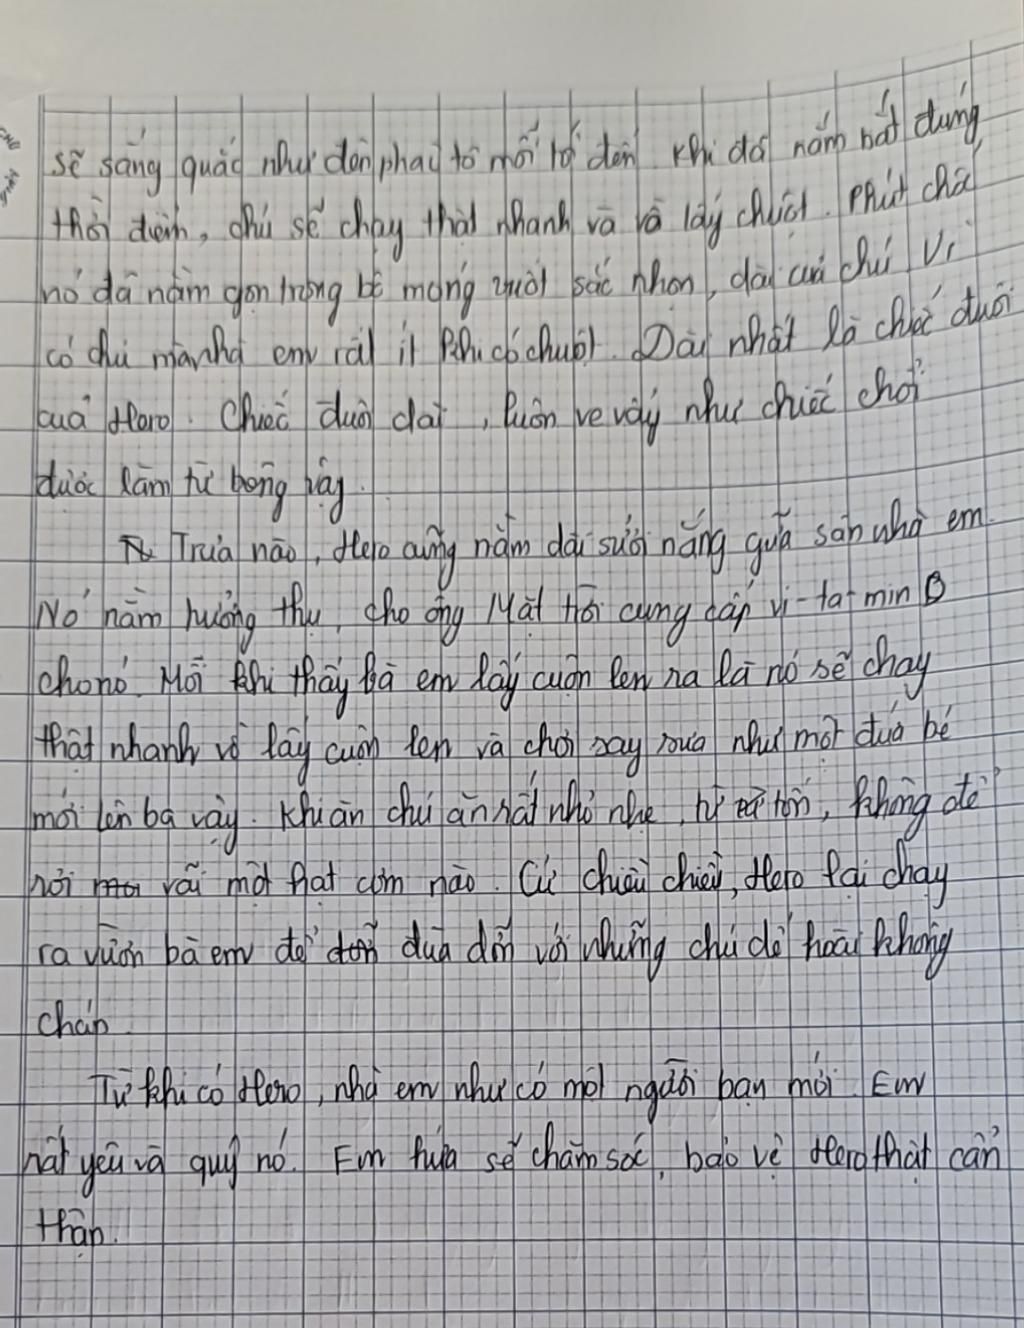 sẽ sáng quắc như đèn pha ô tô mỗi tố đến. Khi đó nắm bắt đúng
thời điểm, chú sẽ chạy thật nhanh và vồ lấy chuột. Phút chốc
nó đã nằm gọn trong bộ móng vuốt sắc nhọn, dài của chú. Vì
có chú mà nhà em rất ít khi có chuột. Dài nhất là chiếc đuôi
của Hero. Chiếc đuôi dài, luôn ve vẩy như chiếc chổi
được làm từ bông vậy.
Trưa nào, Hero cũng nằm dài sưởi nắng giữa sân nhà em.
Nó nằm hưởng thụ, cho ông Mặt trời cung cấp vi-ta-min D
cho nó. Mỗi khi thấy bà em lấy cuộn len ra là nó sẽ chạy
thật nhanh vồ lấy cuộn len và chơi say sưa như một đứa bé
mới lên ba vậy. Khi ăn chú ăn rất nhỏ nhẹ, từ tốn, không để
rơi vãi một hạt cơm nào. Cứ chiều chiều, Hero lại chạy
ra vườn bà em để đùa dỡn với những chú dế hoài không
chán.
Từ khi có Hero, nhà em như có một người bạn mới. Em
rất yêu và quý nó. Em hứa sẽ chăm sóc, bảo vệ Hero thật cẩn
thận.